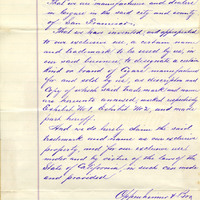 That we are manufacturers and dealers
in cigars in the said city and county
of San Francisco.
That we have invented and appropriated
to our exclusive use, a certain name
and trademark to be used by us, in
our said business, to designate a certain
kind or brand of cigars, manufactured
for and sold by us, a description and
copy of which said trademark and name
are hereunto annexed, marked respectively
Exhibit No 1 & Exhibit No 2, and made
part hereof.
And we do hereby claim the said
trademark and name as our exclusive
property, and for our exclusive use
under and by virtue of the law of the
State of California, in such case made
and provided.
Oppenheimer & Bro